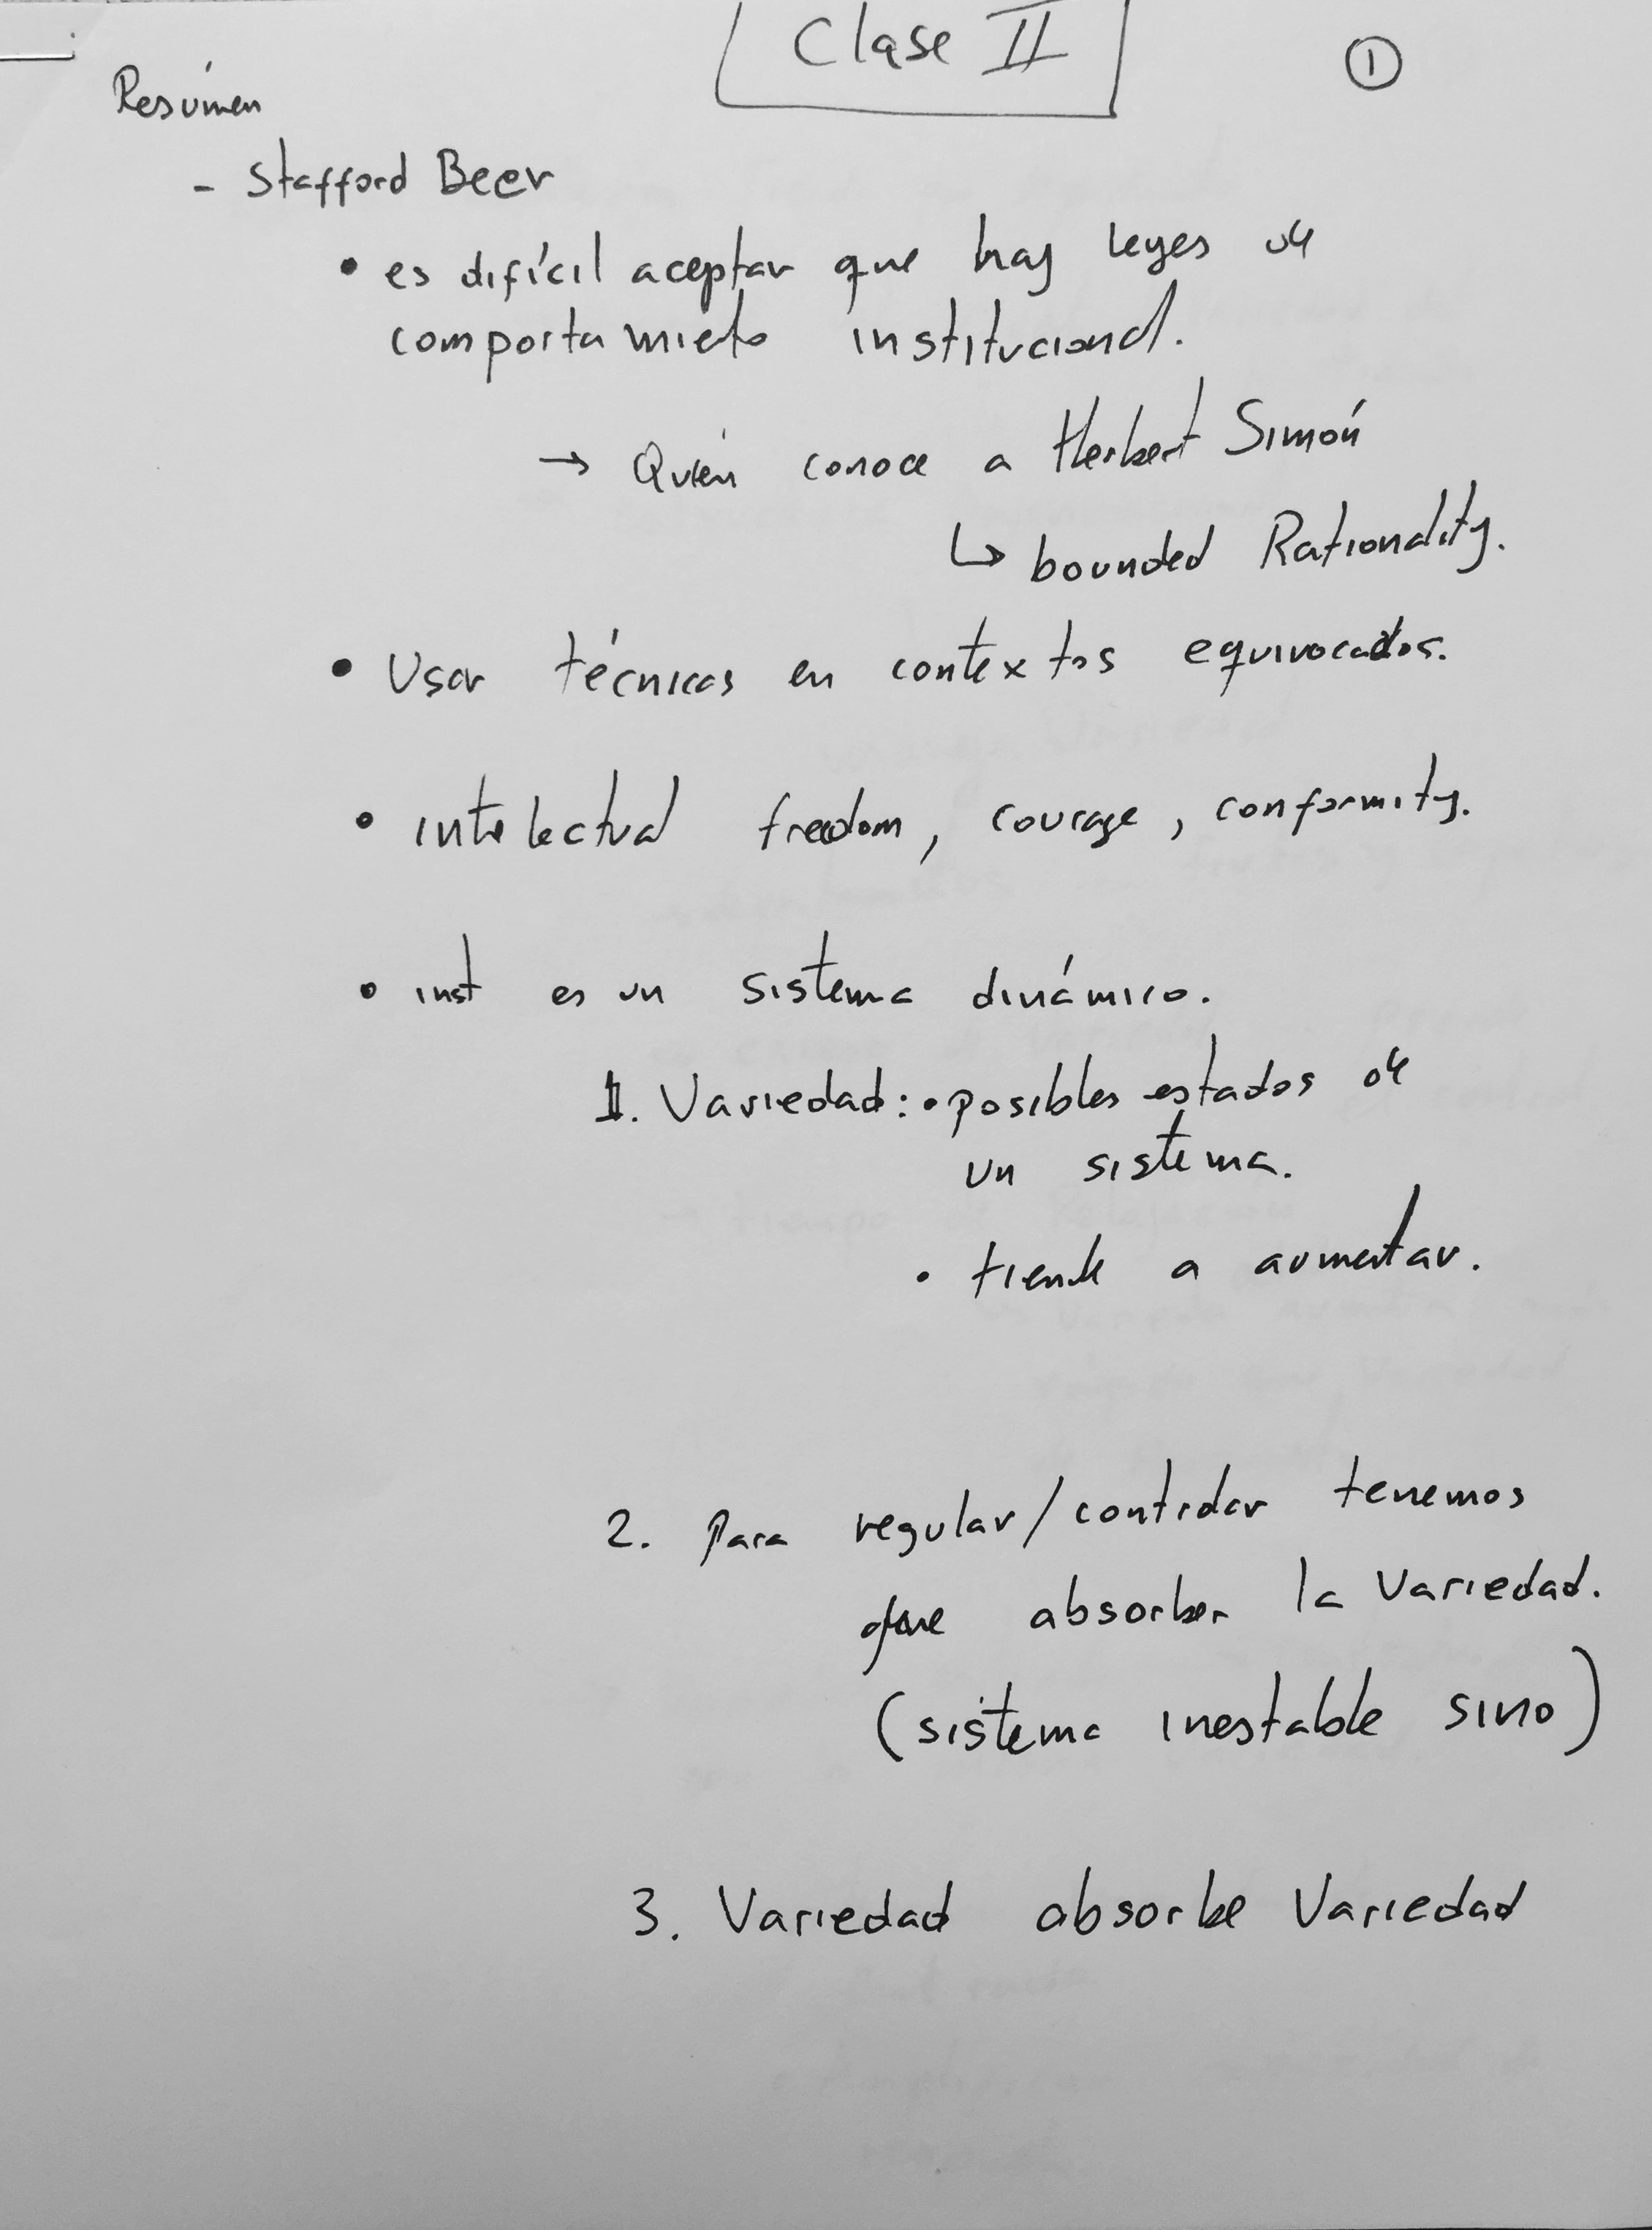 Clase II
①
Resúmen
- Stafford Beer
• es difícil aceptar que hay leyes de
comportamieto institucional.
→ Quién conoce a Herbert Simón
↳ bounded Rationality.
• Usar técnicas en contextos equivocados.
• intelectual freedom, courage, conformity.
• inst es un sistema dinámico.
1. Variedad: • posibles estados de
un sistema.
• tiende a aumentar.
2. Para regular/controlar tenemos
que absorber la Variedad.
(sistema inestable sino)
3. Variedad absorbe Variedad